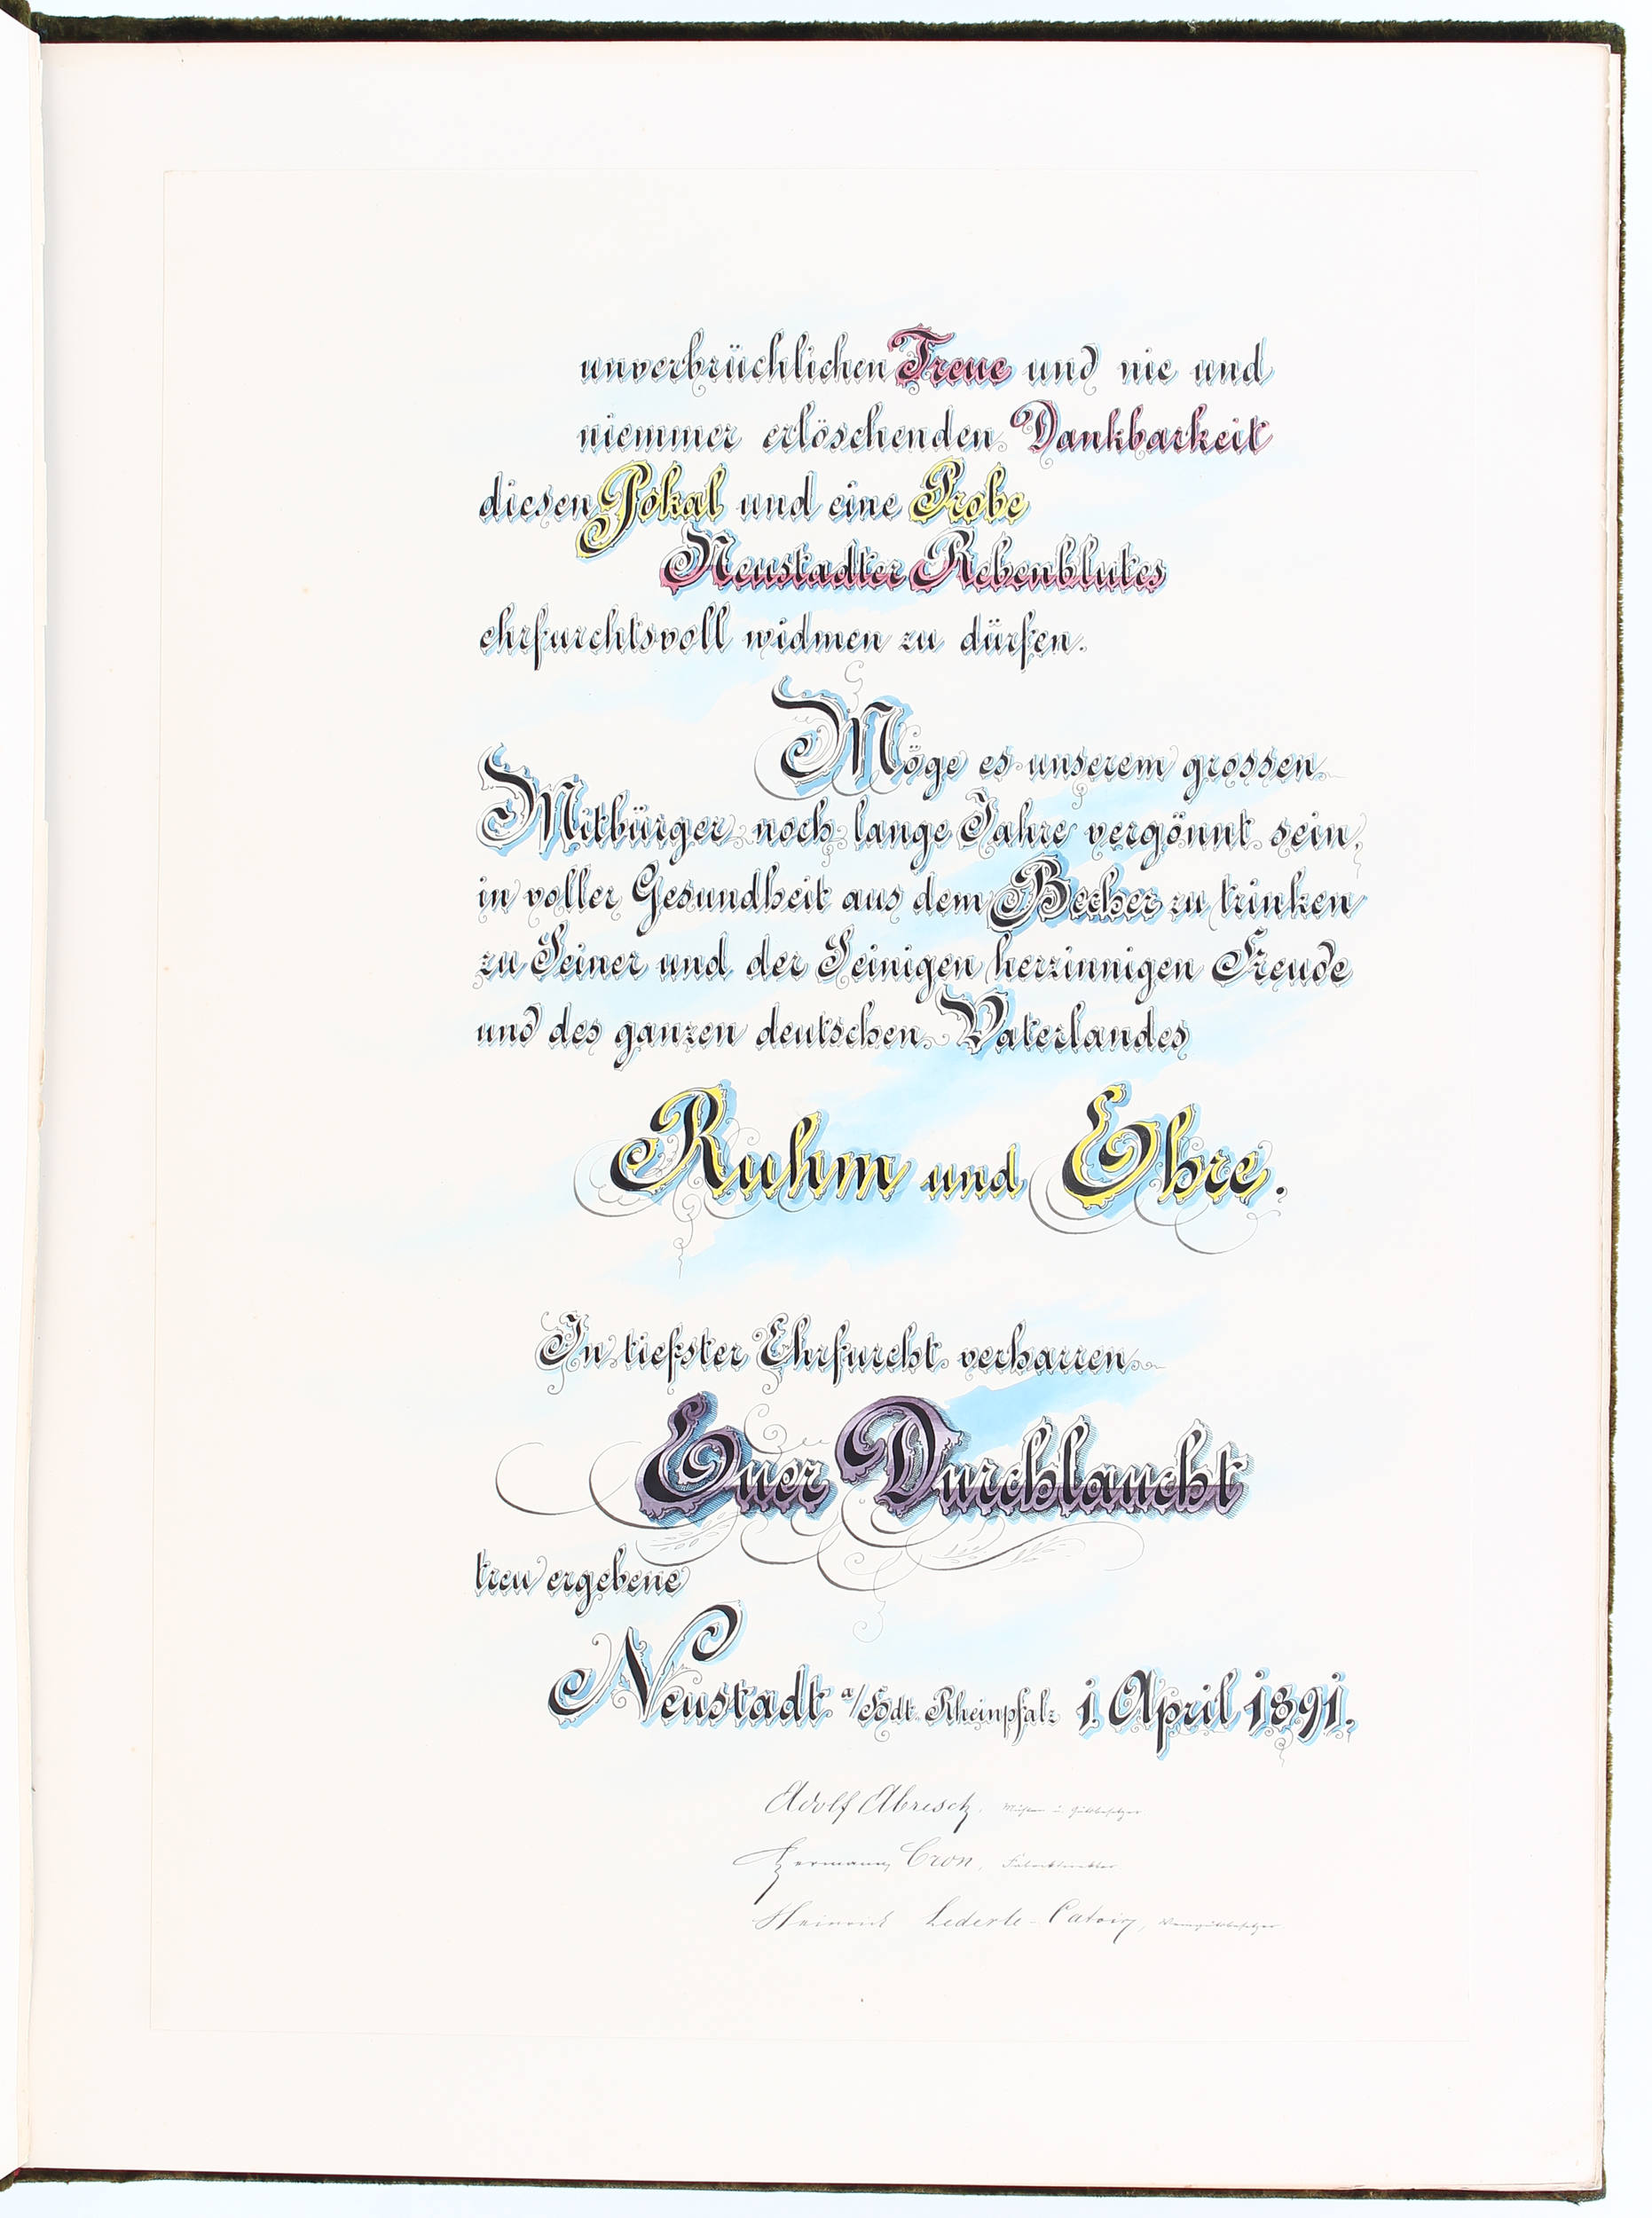 unverbrüchlichen Treue und nie und
niemmer erlöschenden Dankbarkeit
diesen Pokal und eine Probe
Neustadter Rebenblutes
ehrfurchtsvoll widmen zu dürfen.
Möge es unserem grossen
Mitbürger noch lange Jahre vergönnt sein,
in voller Gesundheit aus dem Becher zu trinken
zu Seiner und der Seinigen herzinnigen Freude
und des ganzen deutschen Vaterlandes
Ruhm und Ehre.
In tiefster Ehrfurcht verharren
Euer Durchlaucht
treu ergebene
Neustadt a/Hdt. Rheinpfalz 1. April 1891.
Adolf Abresch, Mühlen u. Gutsbesitzer
Hermann Cron, Fabrikdirektor.
Heinrich Lederle-Catoir, Weingutsbesitzer